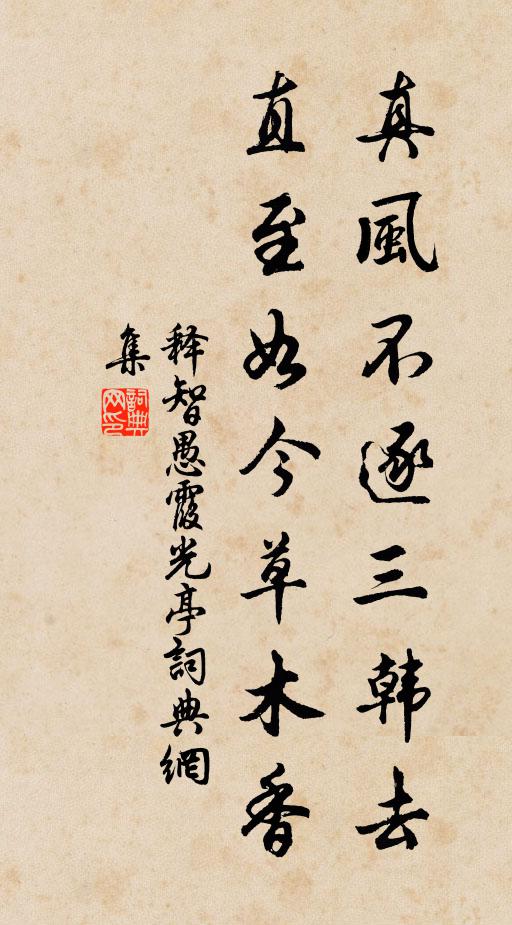 真風不逐三韩去
直至如今草木香
释智愚霞光亭詞典網
集
詞典网印